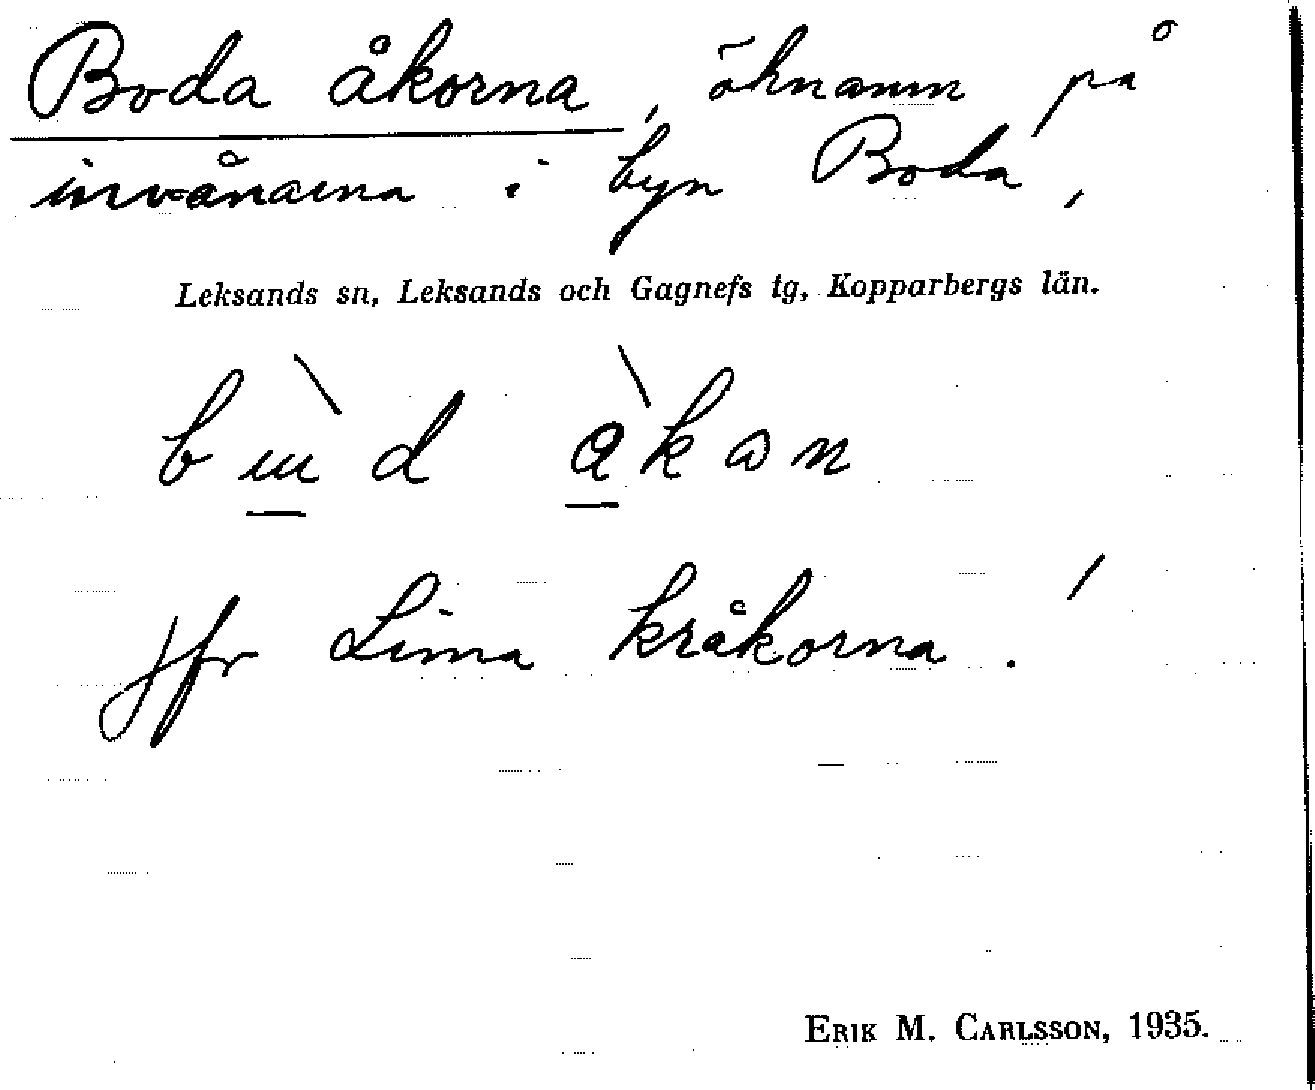 Boda åkorna, öknamn på
invånarna i byn Boda,
Leksands sn, Leksands och Gagnefs tg, Kopparbergs län.
jfr Lima kråkorna. !
ERIK M. CARLSSON, 1935.